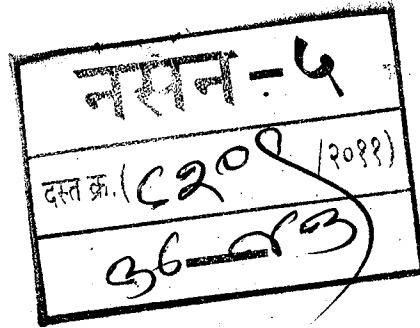 नसन - ५
दस्त क्र. (८२०९ /२०११)
३७ — ४३